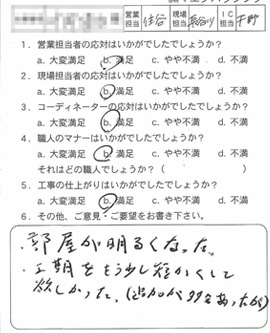 営業担当 現場担当 IC担当
1. 営業担当者の応対はいかがでしたでしょうか?
a. 大変満足 b. 満足 c. やや不満 d. 不満
2. 現場担当者の応対はいかがでしたでしょうか?
a. 大変満足 b. 満足 c. やや不満 d. 不満
3. コーディネーターの応対はいかがでしたでしょうか?
a. 大変満足 b. 満足 c. やや不満 d. 不満
4. 職人のマナーはいかがでしたでしょうか?
a. 大変満足 b. 満足 c. やや不満 d. 不満
それはどの職人でしょうか? ( )
5. 工事の仕上がりはいかがでしたでしょうか?
a. 大変満足 b. 満足 c. やや不満 d. 不満
6. その他、ご意見・ご要望をお書き下さい。
・部屋が明るくなった。
・工期をもう少し短かくして
欲しかった。(追加が多々あったが)